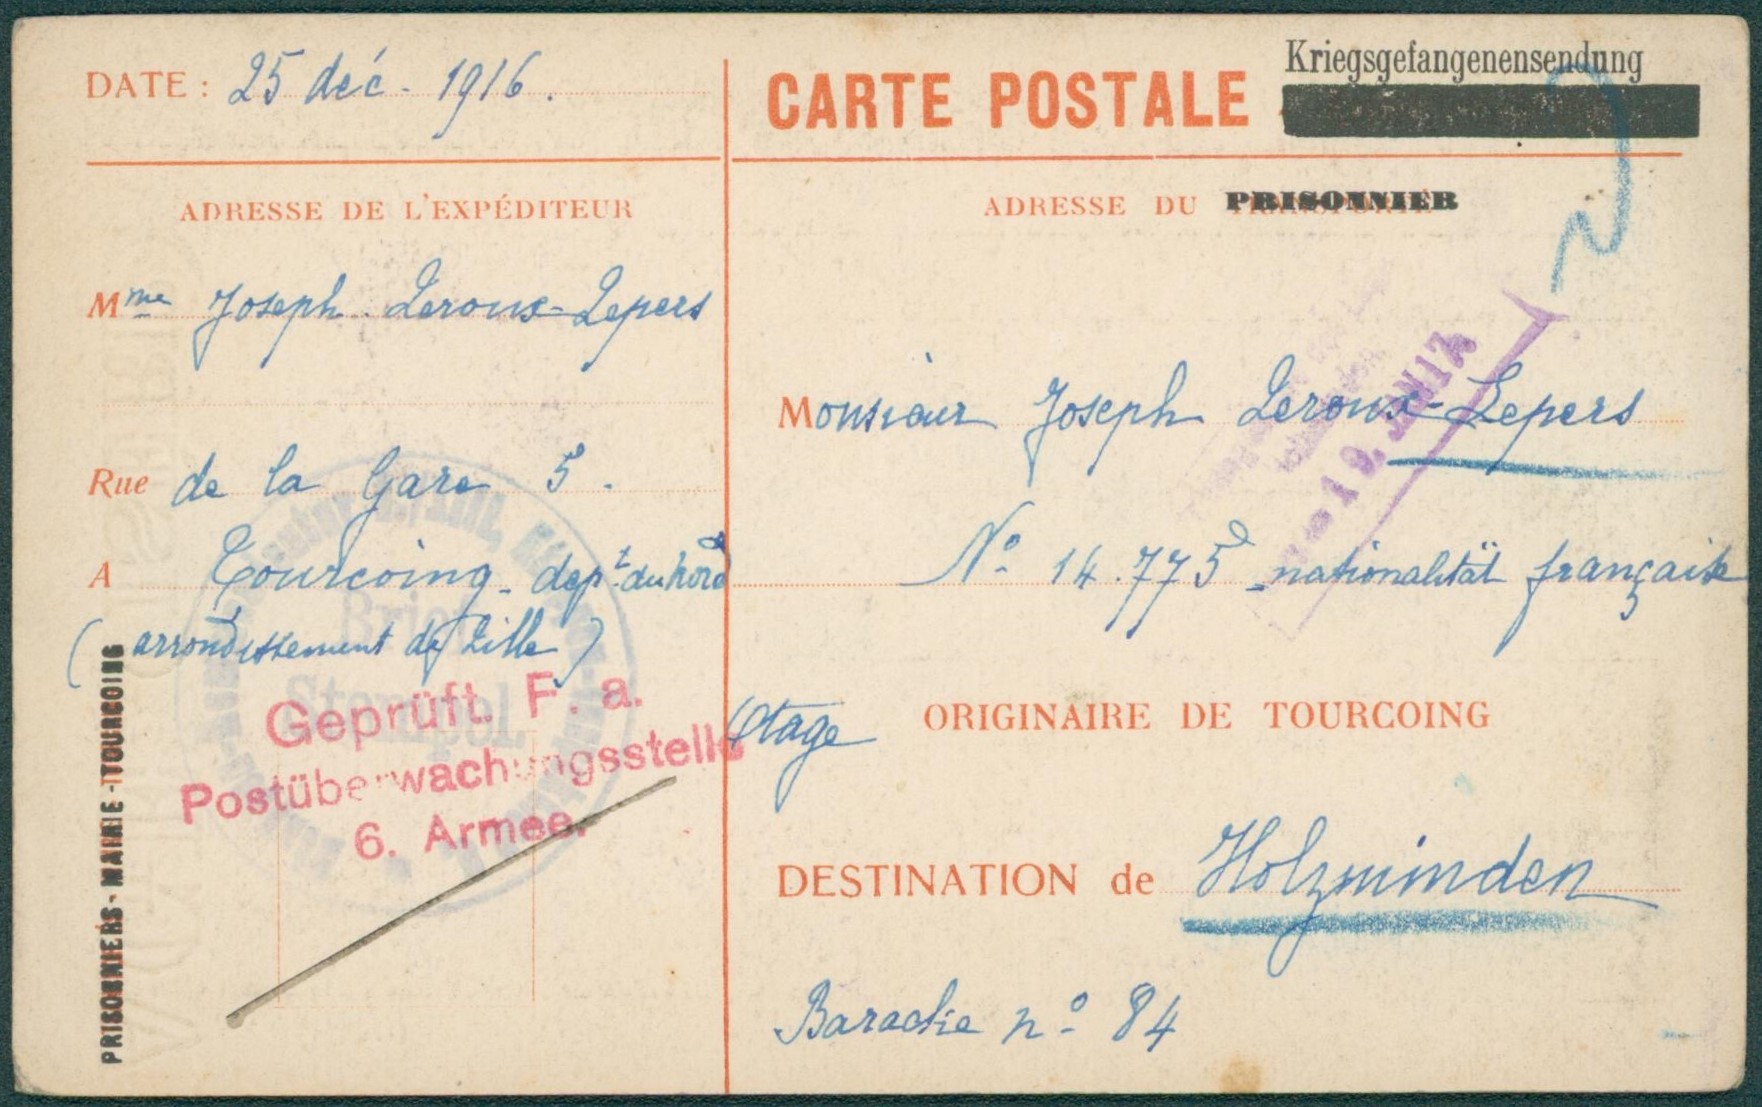 DATE : 25 déc. 1916.
CARTE POSTALE
Kriegsgefangenensendung
ADRESSE DE L'EXPÉDITEUR
Mme Joseph Leroux-Lepers
Rue de la Gare 5.
A Tourcoing - dept du Nord
(arrondissement de Lille)
Brief
Stempel.
Geprüft. F. a.
Postüberwachungsstelle
6. Armee.
PRISONNIERS - MAIRIE - TOURCOING
ADRESSE DU PRISONNIER
Monsieur Joseph Leroux-Lepers
No 14.775 - nationalität française
-19. JAN 17
Otage
ORIGINAIRE DE TOURCOING
DESTINATION de Holzminden
Baracke no 84